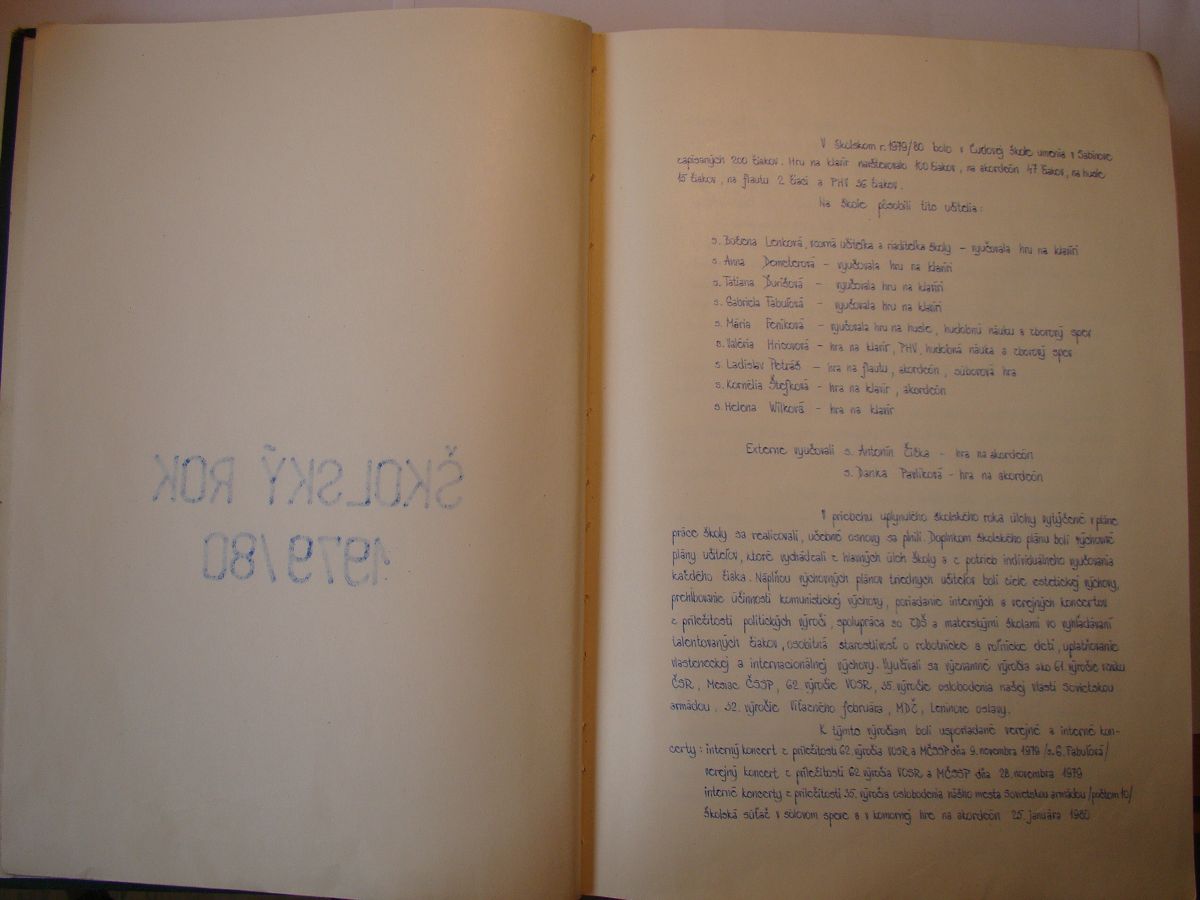 ŠKOLSKÝ ROK
1979/80
V školskom r. 1979/80 bolo v Ľudovej škole umenia v Sabinove
zapísaných 200 žiakov. Hru na klavír navštevovalo 100 žiakov, na akordeón 47 žiakov, na husle
15 žiakov, na flautu 2 žiaci a PHV 36 žiakov.
Na škole pôsobili títo učitelia:
s. Božena Lenková, vzorná učiteľka a riaditeľka školy – vyučovala hru na klavíri
s. Anna Demeterová – vyučovala hru na klavíri
s. Tatiana Ďurišová – vyučovala hru na klavíri
s. Gabriela Fabuľová – vyučovala hru na klavíri
s. Mária Feníková – vyučovala hru na husle, hudobnú náuku a zborový spev
s. Valéria Hricovová – hra na klavír, PHV, hudobná náuka a zborový spev
s. Ladislav Petráš – hra na flautu, akordeón, súborová hra
s. Kornélia Štefková – hra na klavír, akordeón
s. Helena Wilková – hra na klavír
Externe vyučovali s. Antonín Čička – hra na akordeón
s. Danka Pavlíková – hra na akordeón
V priebehu uplynulého školského roka úlohy vytýčené v pláne
práce školy sa realizovali, učebné osnovy sa plnili. Doplnkom školského plánu boli výchovné
plány učiteľov, ktoré vychádzali z hlavných úloh školy a z potrieb individuálneho vyučovania
každého žiaka. Náplňou výchovných plánov triednych učiteľov boli ciele estetickej výchovy,
prehlbovanie účinnosti komunistickej výchovy, poriadanie interných a verejných koncertov
z príležitosti politických výročí, spolupráca so ZDŠ a materskými školami vo vyhľadávaní
talentovaných žiakov, osobitná starostlivosť o robotnícke a roľnícke deti, uplatňovanie
vlasteneckej a internacionálnej výchovy. Využívali sa významné výročia ako 61. výročie vzniku
ČSR, Mesiac ČSSP, 62. výročie VOSR, 35. výročie oslobodenia našej vlasti Sovietskou
armádou, 32. výročie Víťazného februára, MDŽ, Leninove oslavy.
K týmto výročiam boli usporiadané verejné a interné kon-
certy: interný koncert z príležitosti 62. výročia VOSR a MČSSP dňa 9. novembra 1979 /s. G. Fabuľová/
verejný koncert z príležitosti 62. výročia VOSR a MČSSP dňa 28. novembra 1979
interné koncerty z príležitosti 35. výročia oslobodenia nášho mesta Sovietskou armádou /počtom 10/
školská súťaž v sólovom speve a v komornej hre na akordeón 25. januára 1980